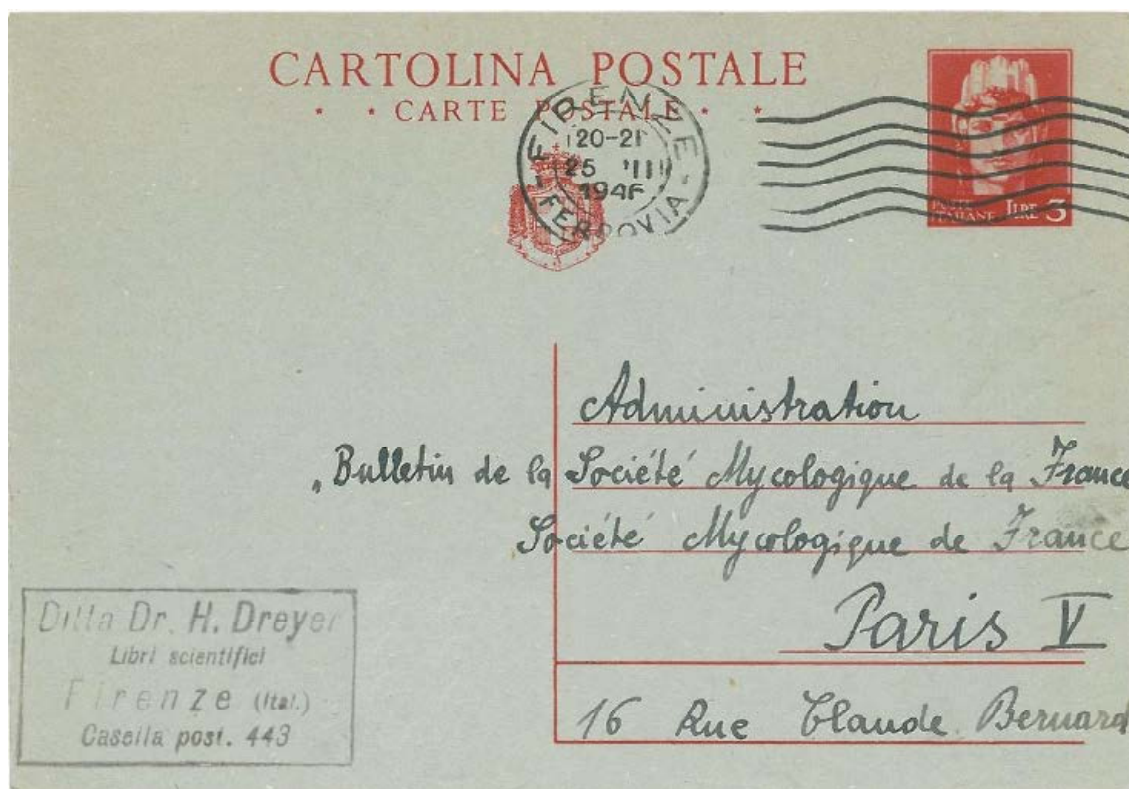 CARTOLINA POSTALE
CARTE POSTALE
FIRENZE
20-21
25 III
1946
FERROVIA
POSTE
ITALIANE LIRE 3
Administration
„Bulletin de la Société Mycologique de la France
Société Mycologique de France
Paris V
16 Rue Claude Bernard
Ditta Dr. H. Dreyer
Libri scientifici
Firenze (Ital.)
Casella post. 443